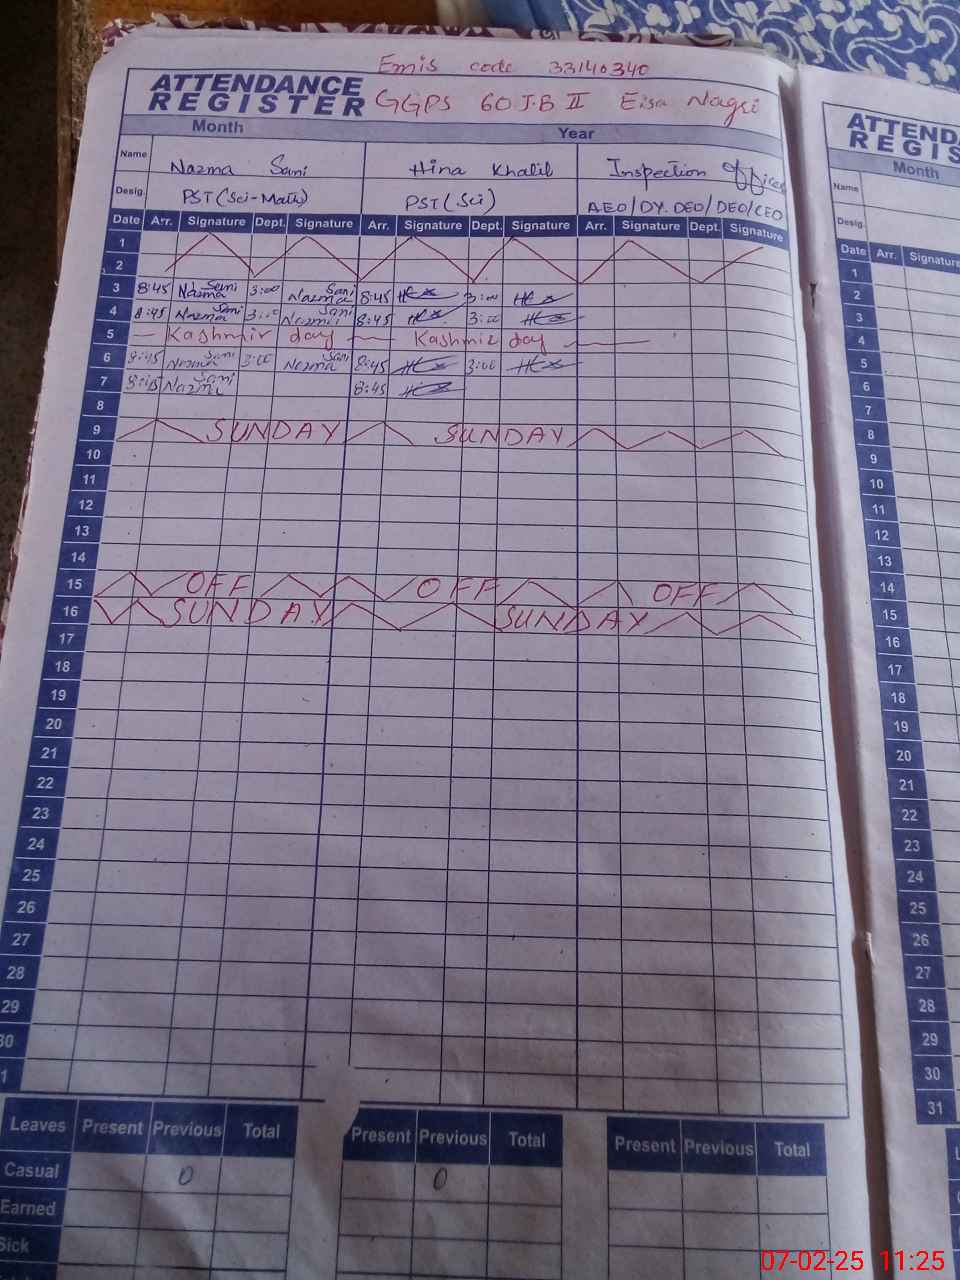 Emis code 33140340
ATTENDANCE REGISTER GGPS 60 J.B II Eisa Nagri
Month Year
Name Nazma Sani Hina Khalil Inspection Officer
Desig. PST (Sci-Math) PST (Sci) AEO/DY.DEO/DEO/CEO
Date Arr. Signature Dept. Signature Arr. Signature Dept. Signature Arr. Signature Dept. Signature
1
2
3 8:45 Nazma Sani 3:00 Nazma Sani 8:45 3:00
4 8:45 Nazma Sani 3:00 Nazma Sani 8:45 3:00
5 Kashmir day Kashmir day
6 8:45 Nazma Sani 3:00 Nazma Sani 8:45 3:00
7 Nazma Sani 8:45
8
9 SUNDAY SUNDAY
10
11
12
13
14
15 OFF OFF OFF
16 SUNDAY SUNDAY
17
18
19
20
21
22
23
24
25
26
27
28
29
30
1
Leaves Present Previous Total Present Previous Total Present Previous Total
Casual 0 0
Earned
Sick
ATTEND
REGIS
Month
Name
Desig.
Date Arr. Signature
1
2
3
4
5
6
7
8
9
10
11
12
13
14
15
16
17
18
19
20
21
22
23
24
25
26
27
28
29
30
31
07-02-25 11:25